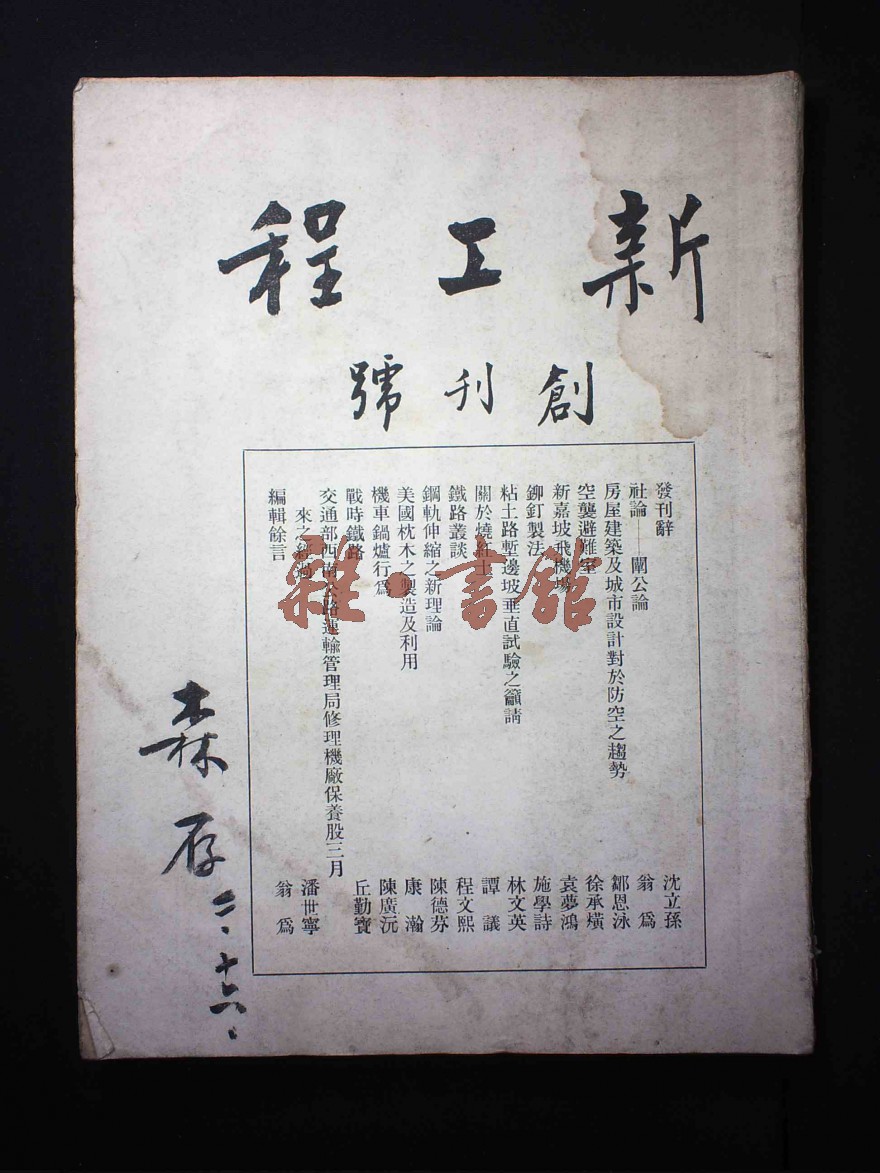 新工程
創刊號
發刊辭 沈立孫
社論——闡公論 翁為
房屋建築及城市設計對於防空之趨勢 鄒恩泳
空襲避難室 徐承𤏪
新嘉坡飛機場 袁夢鴻
鉚釘製法 施學詩
粘土路塹邊坡垂直試驗之籲請 林文英
關於燒紅土 譚議
鐵路叢談 程文熙
鋼軌伸縮之新理論 陳德芬
美國枕木之製造及利用 康瀚
機車鍋爐行為 陳廣沅
戰時鐵路 丘勤寶
交通部西南公路運輸管理局修理機廠保養股三月
來之經過 潘世寧
編輯餘言 翁為
森存 二、十六、
雜·書館